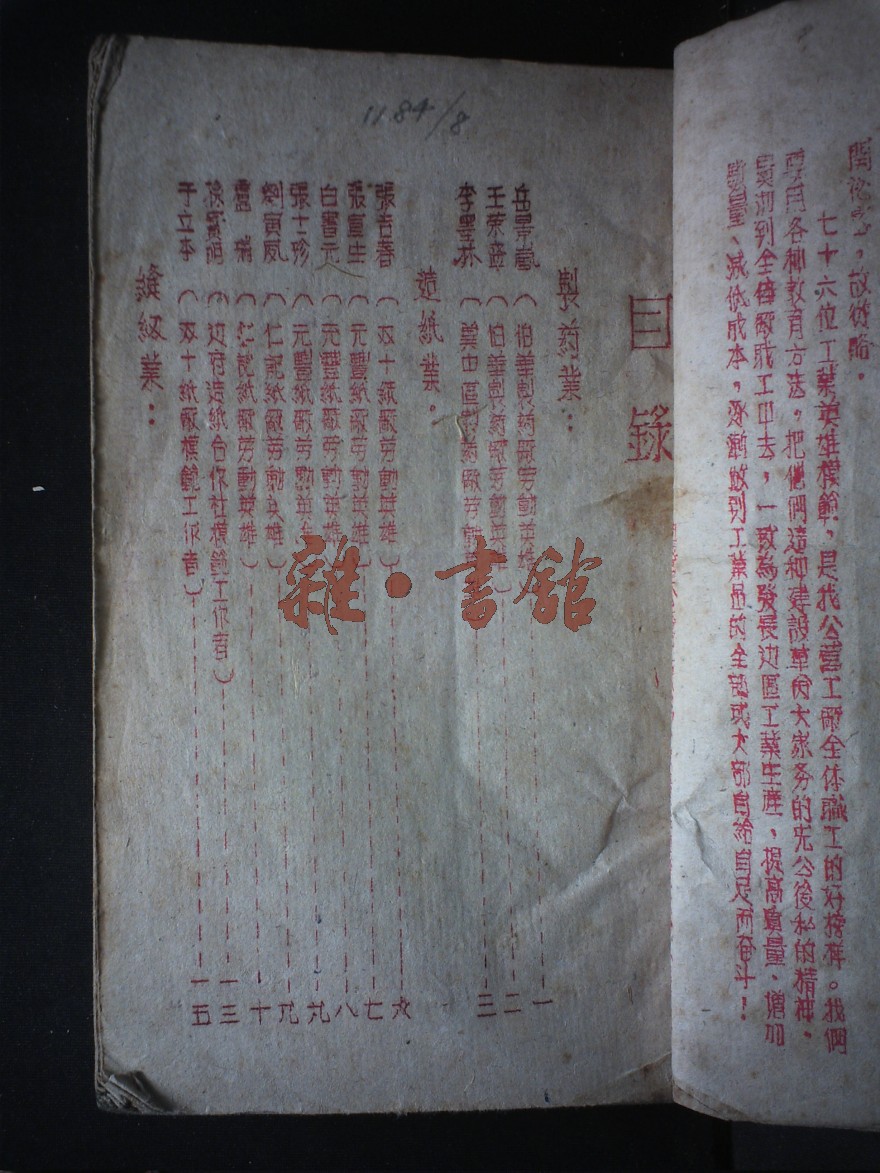 開徳宏，故從略。
七十六位工業英雄模範，是我公營工廠全体職工的好榜样。我們
要用各种教育方法，把他們這种建設革命大家务的先公後私的精神，
貫澈到全体廠职工中去，一致為發展边區工業生產，提高質量、增加
數量、減低成本，逐漸做到工業品的全部或大部自給自足而奋斗！
1184/8
目錄
製葯業：
岳景嵐（伯華製葯廠劳動英雄）一
王荣章（伯華製葯廠劳動英雄）二
李墨林（冀中區製葯廠劳動英雄）三
造紙業。
張吉春（双十紙廠劳動英雄）六
張直生（元豐紙廠劳動英雄）七
白書元（元豐紙廠劳動英雄）八
張士珍（元豐紙廠劳動英雄）九
劉寅风（仁記紙廠劳動英雄）九
盧瑞（仁記紙廠劳動英雄）十
徐（边府造紙合作社模範工作者）一三
于立本（双十紙廠模範工作者）一五
縫紉業：
雜·書館